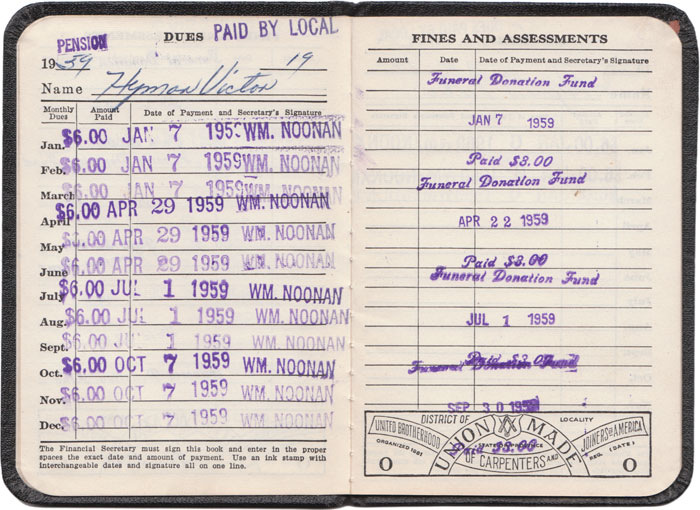 PENSION
DUES PAID BY LOCAL
1959 19
Name Hyman Victor
Monthly Dues Amount Paid Date of Payment and Secretary's Signature
Jan. $6.00 JAN 7 1959 WM. NOONAN
Feb. $6.00 JAN 7 1959 WM. NOONAN
March $6.00 JAN 7 1959 WM. NOONAN
April $6.00 APR 29 1959 WM. NOONAN
May $6.00 APR 29 1959 WM. NOONAN
June $6.00 APR 29 1959 WM. NOONAN
July $6.00 JUL 1 1959 WM. NOONAN
Aug. $6.00 JUL 1 1959 WM. NOONAN
Sept. $6.00 JUL 1 1959 WM. NOONAN
Oct. $6.00 OCT 7 1959 WM. NOONAN
Nov. $6.00 OCT 7 1959 WM. NOONAN
Dec. $6.00 OCT 7 1959 WM. NOONAN
The Financial Secretary must sign this book and enter in the proper
spaces the exact date and amount of payment. Use an ink stamp with
interchangeable dates and signature all on one line.
FINES AND ASSESSMENTS
Amount Date Date of Payment and Secretary's Signature
Funeral Donation Fund
JAN 7 1959
Paid $3.00
Funeral Donation Fund
APR 22 1959
Paid $3.00
Funeral Donation Fund
JUL 1 1959
Paid $3.00
Funeral Donation Fund
SEP 30 1959
DISTRICT OF LOCALITY
UNITED BROTHERHOOD UNION MADE JOINERS OF AMERICA
ORGANIZED 1881 REG. (DATE)
Paid $3.00
OF CARPENTERS AND
O O